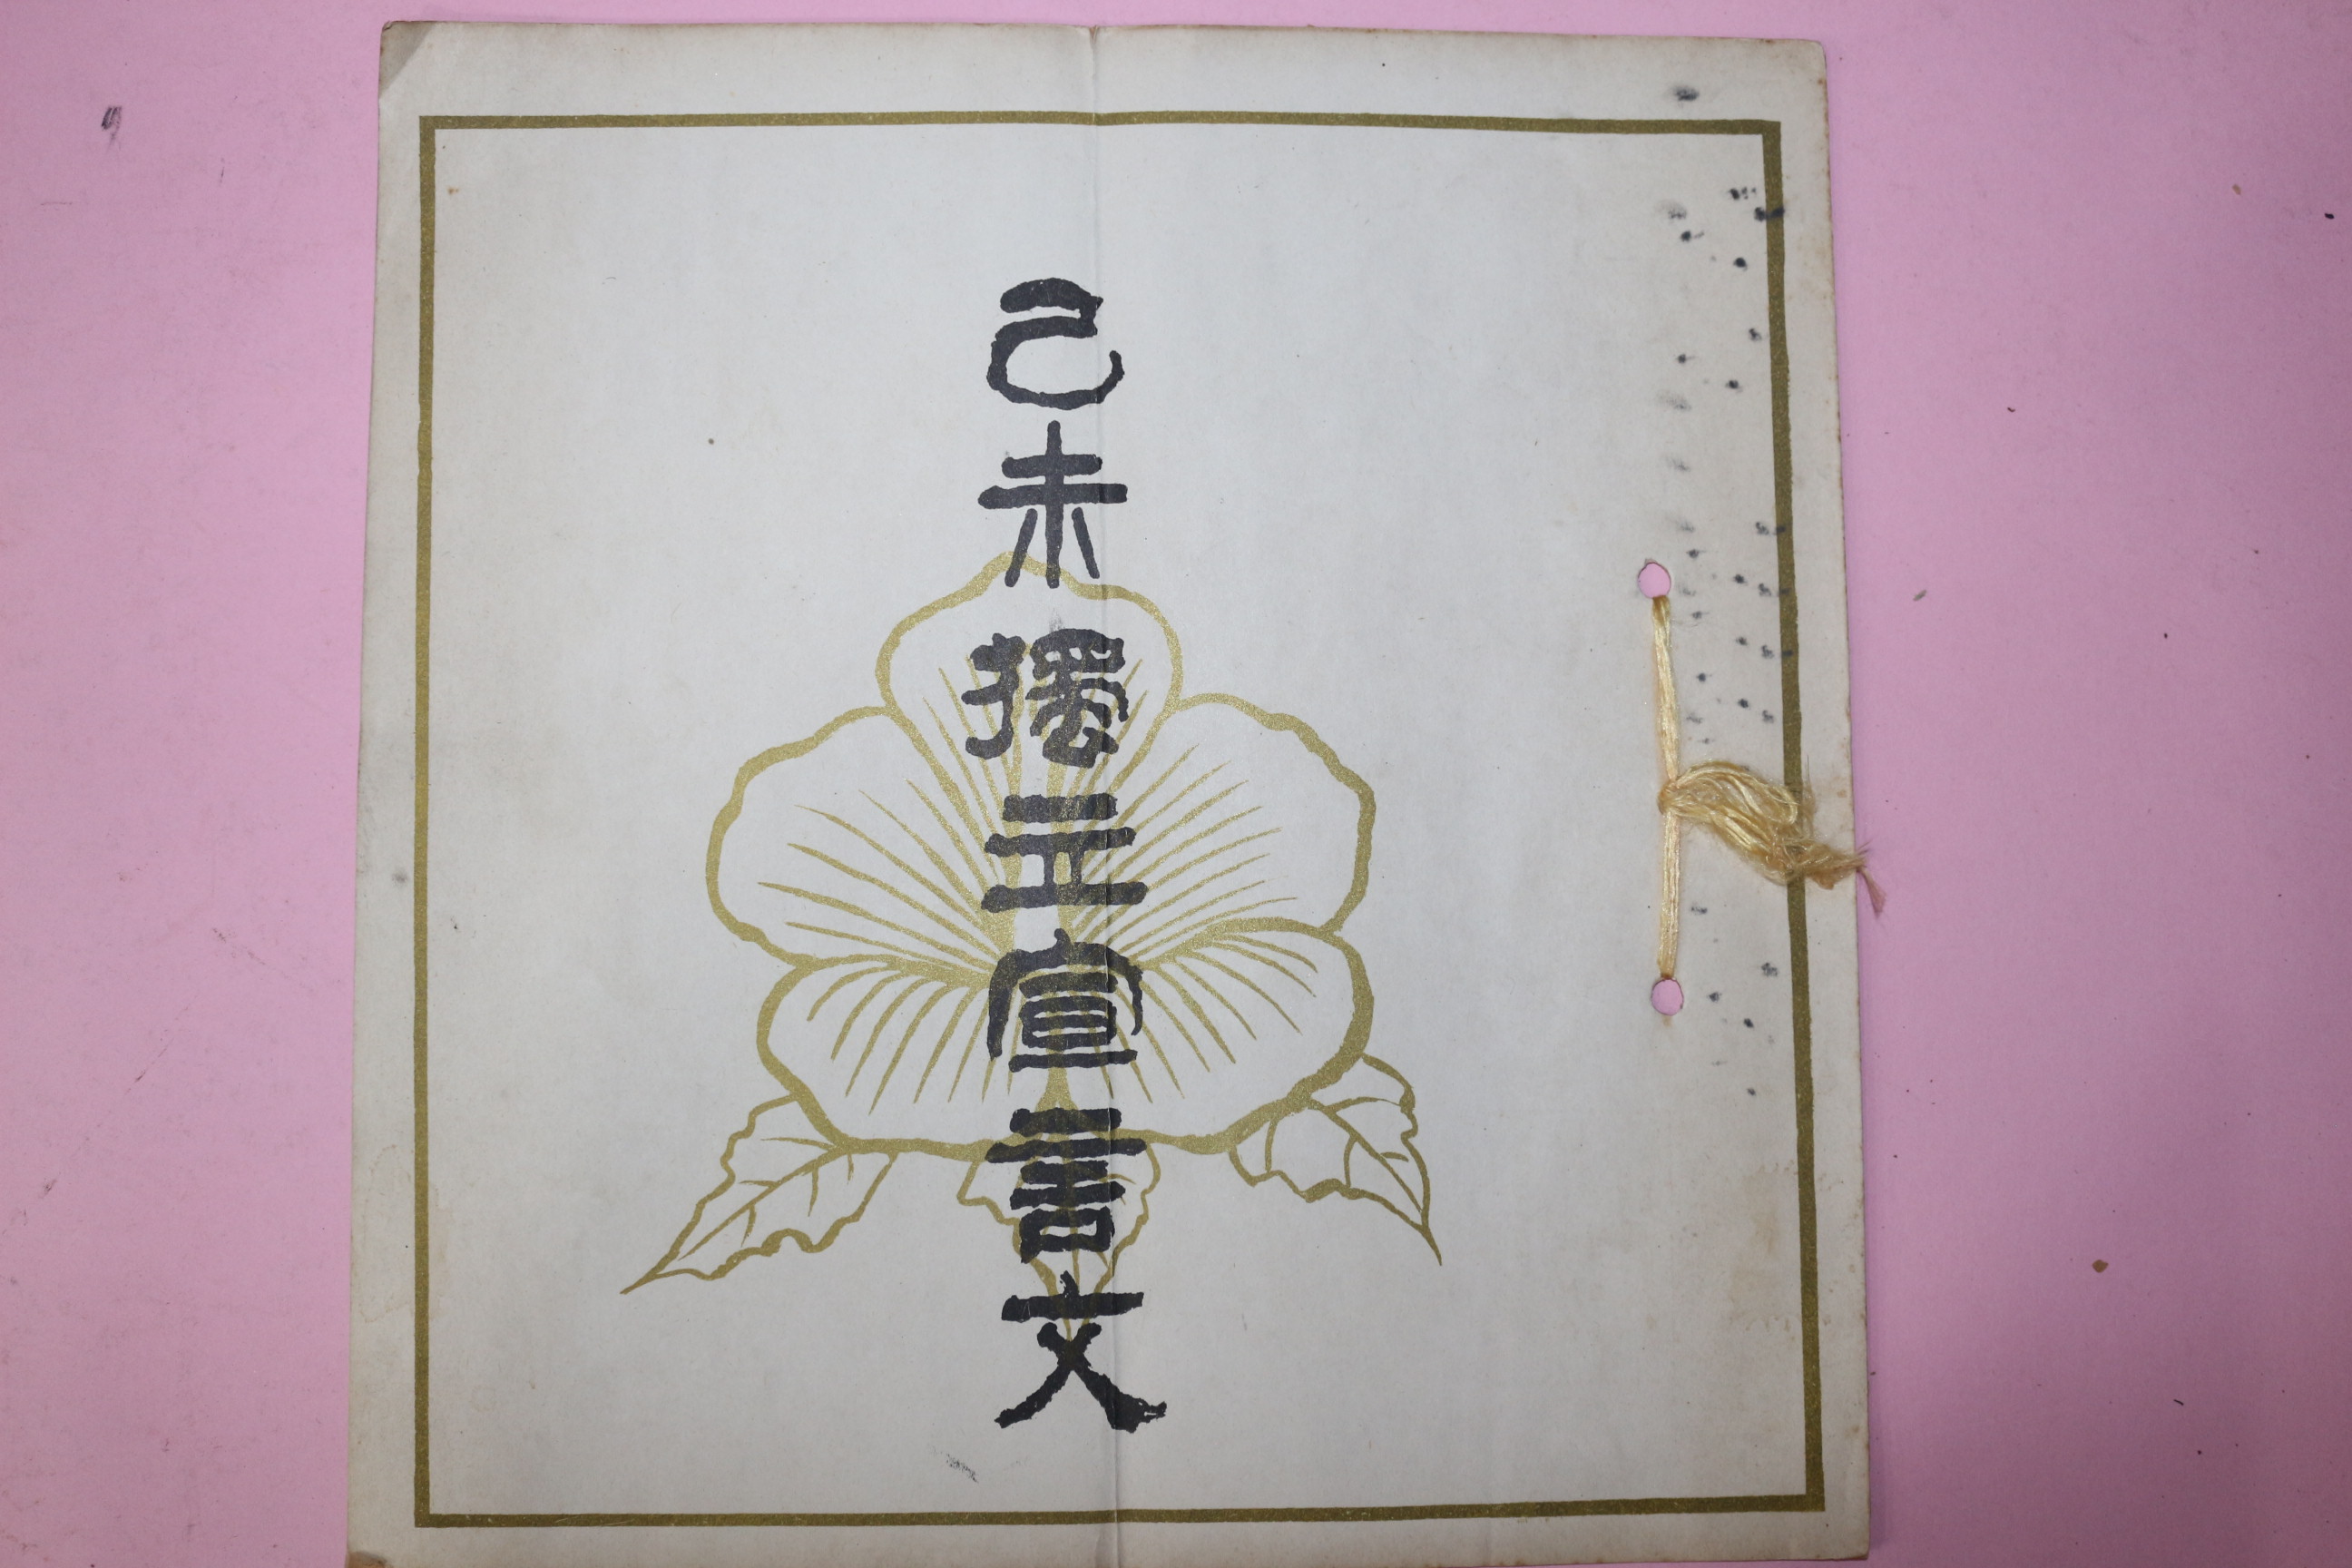 己未獨立宣言文